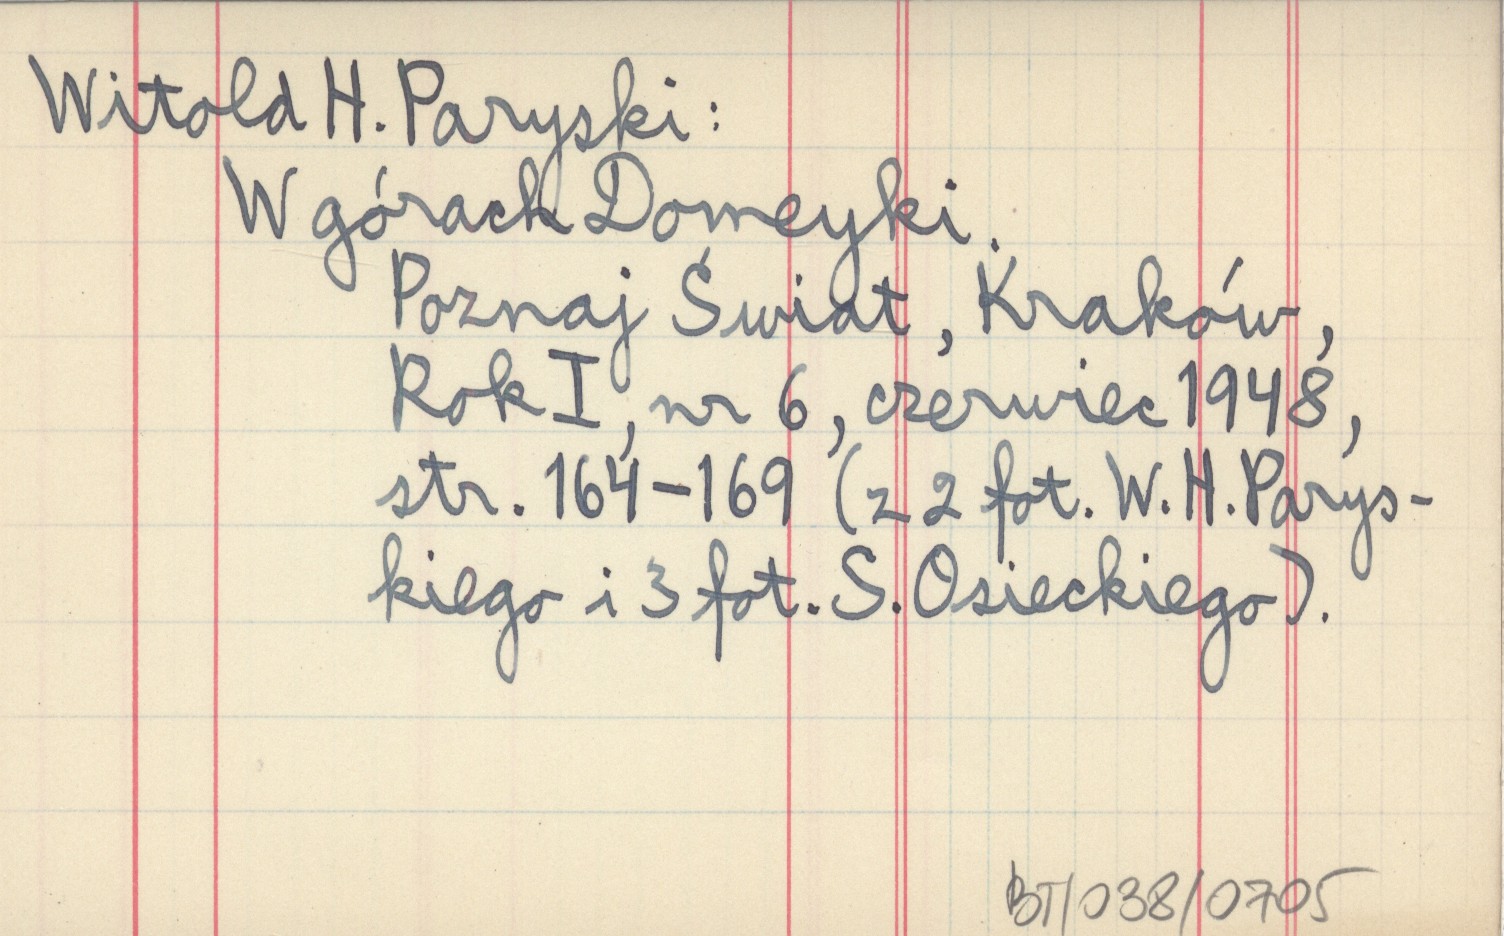 Witold H. Paryski:
W górach Domeyki.
Poznaj Świat, Kraków,
Rok I, nr 6, czerwiec 1948,
str. 164-169 (z 2 fot. W.H. Parys-
kiego i 3 fot. S. Osieckiego).
BT/038/0705